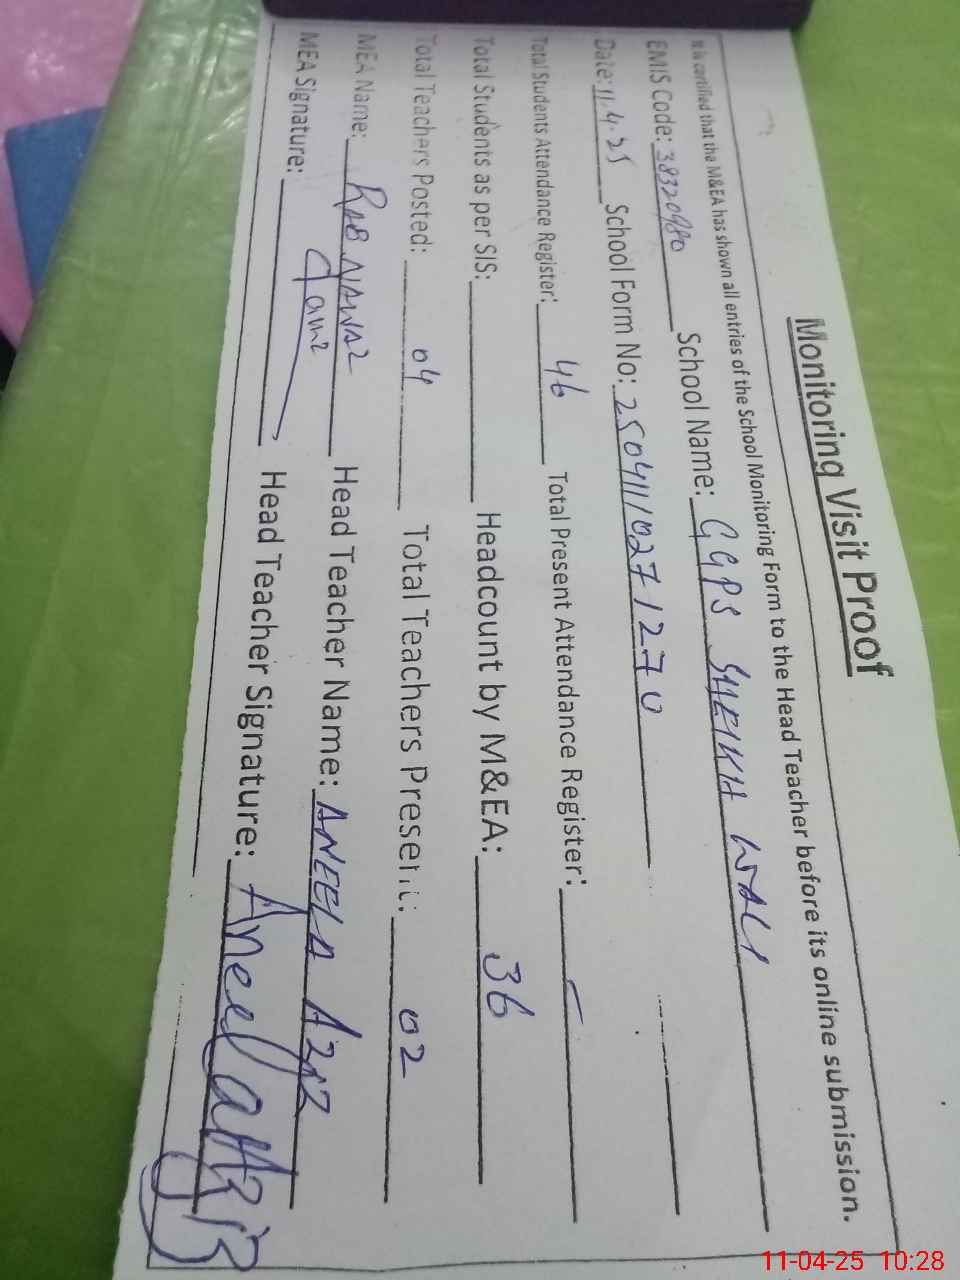 Monitoring Visit Proof
It is certified that the M&EA has shown all entries of the School Monitoring Form to the Head Teacher before its online submission.
EMIS Code: 38320980 School Name: GGPS SHEIKH WALI
Date: 11-4-25 School Form No: 25041110271270
Total Students Attendance Register: 46 Total Present Attendance Register: –
Total Students as per SIS: Headcount by M&EA: 36
Total Teachers Posted: 04 Total Teachers Present: 02
MEA Name: RAB NAWAZ Head Teacher Name: ANEELA AZIZ
MEA Signature: Head Teacher Signature: Aneela Aziz
11-04-25 10:28